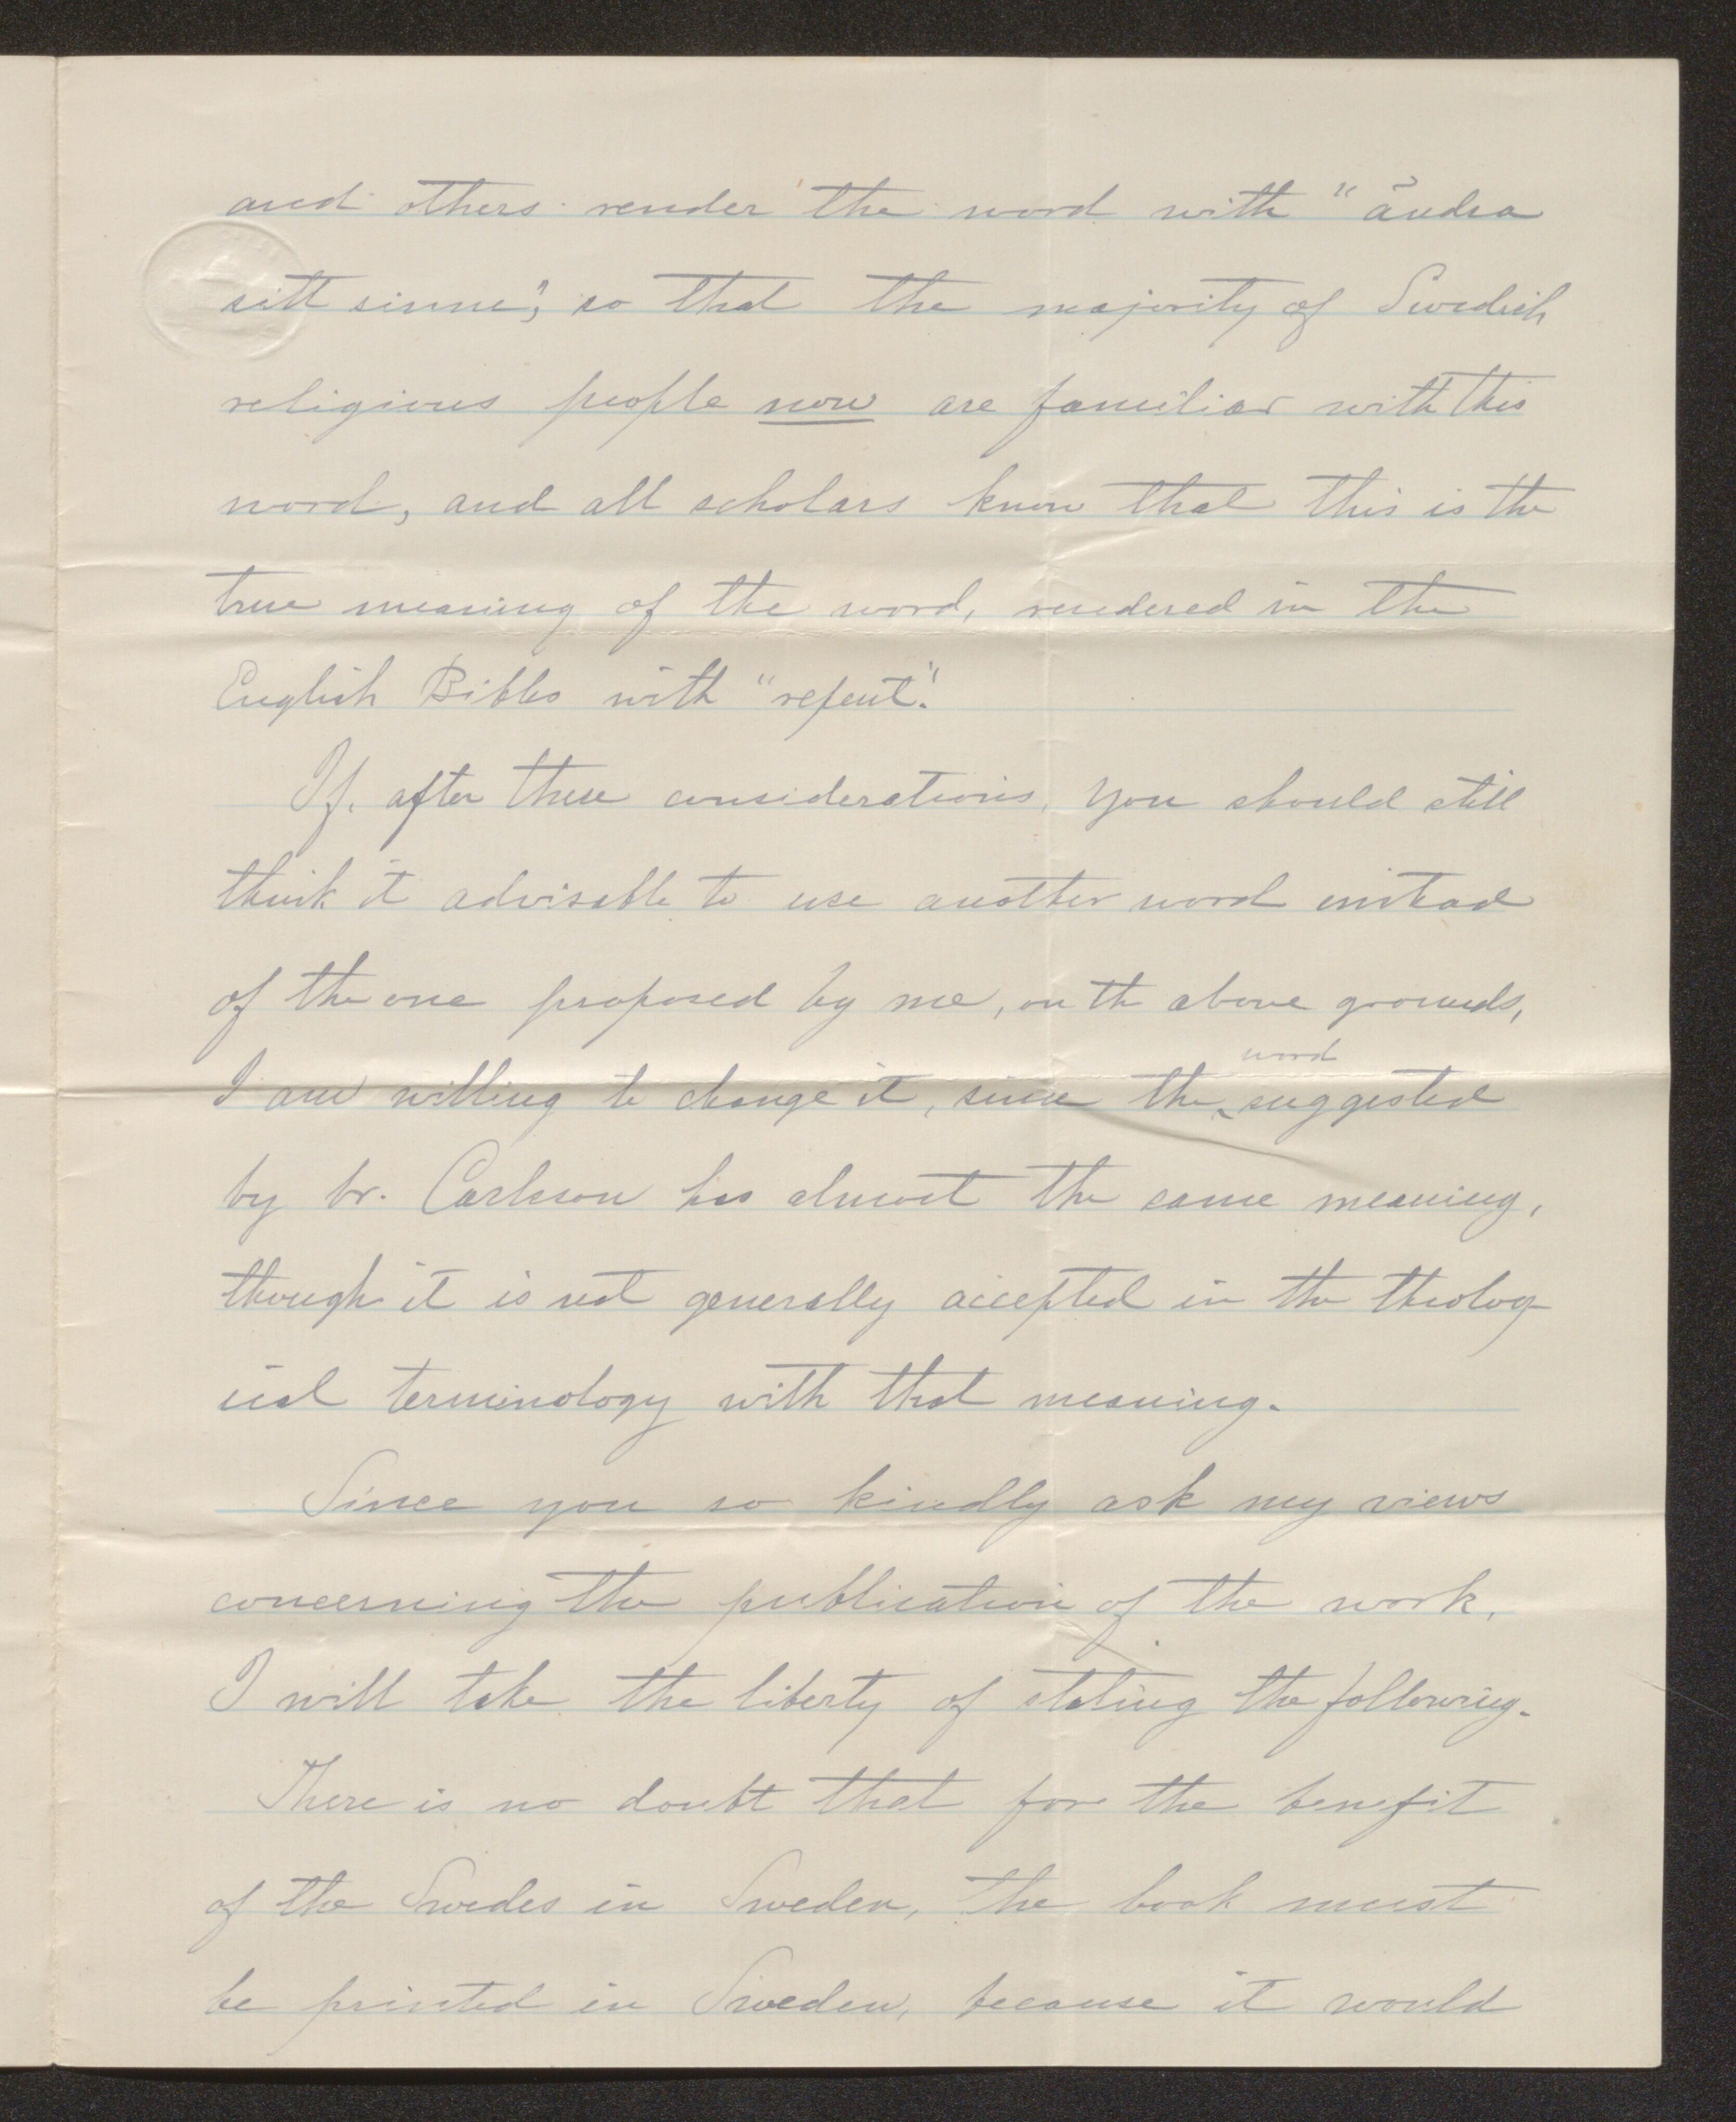 and others render the word with "ändra
sitt sinne", so that the majority of Swedish
religious people now are familiar with this
word, and all scholars know that this is the
true meaning of the word, rendered in the
English Bibles with "repent".
If, after these considerations, you should still
think it advisable to use another word instead
of the one proposed by me, on the above grounds,
I am willing to change it, since the word suggested
by br. Carlson has almost the same meaning,
though it is not generally accepted in the theolog-
ical terminology with that meaning.
Since you so kindly ask my views
concerning the publication of the work,
I will take the liberty of stating the following.
There is no doubt that for the benefit
of the Swedes in Sweden, the book must
be printed in Sweden, because it would